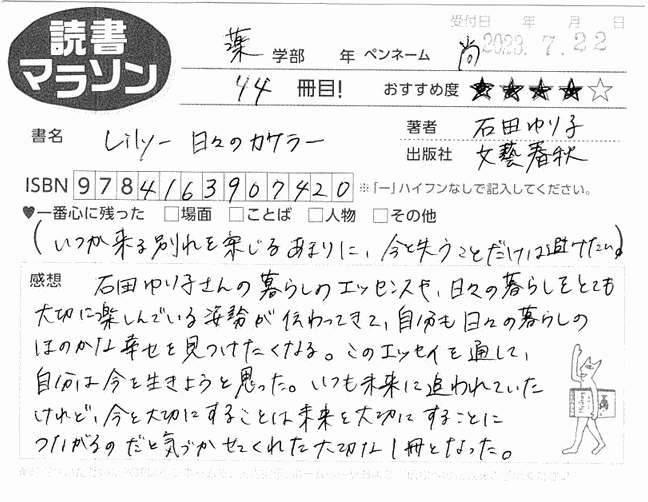 読書
マラソン
受付日 年 月 日
2023.7.22
薬 学部 年 ペンネーム 尚
44 冊目! おすすめ度 ★★★★☆
書名 Lily ー 日々のカケラー
著者 石田ゆり子
出版社 文藝春秋
ISBN 9784163907420 ※「ー」ハイフンなしで記入してください。
♥一番心に残った □場面 □ことば □人物 □その他
(いつか来る別れを案じるあまりに、今を失うことだけは避けたい。)
感想 石田ゆり子さんの暮らしのエッセンスや、日々の暮らしをとても
大切に楽しんでいる姿勢が伝わってきて、自分も日々の暮らしの
ほのかな幸せを見つけたくなる。このエッセイを通して、
自分は今を生きようと思った。いつも未来に追われていた
けれど、今を大切にすることは未来を大切にすることに
つながるのだと気づかせてくれた大切な1冊となった。